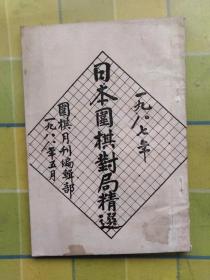 一九八七年
日本圍棋對局精選
圍棋月刊編輯部
一九八八年五月